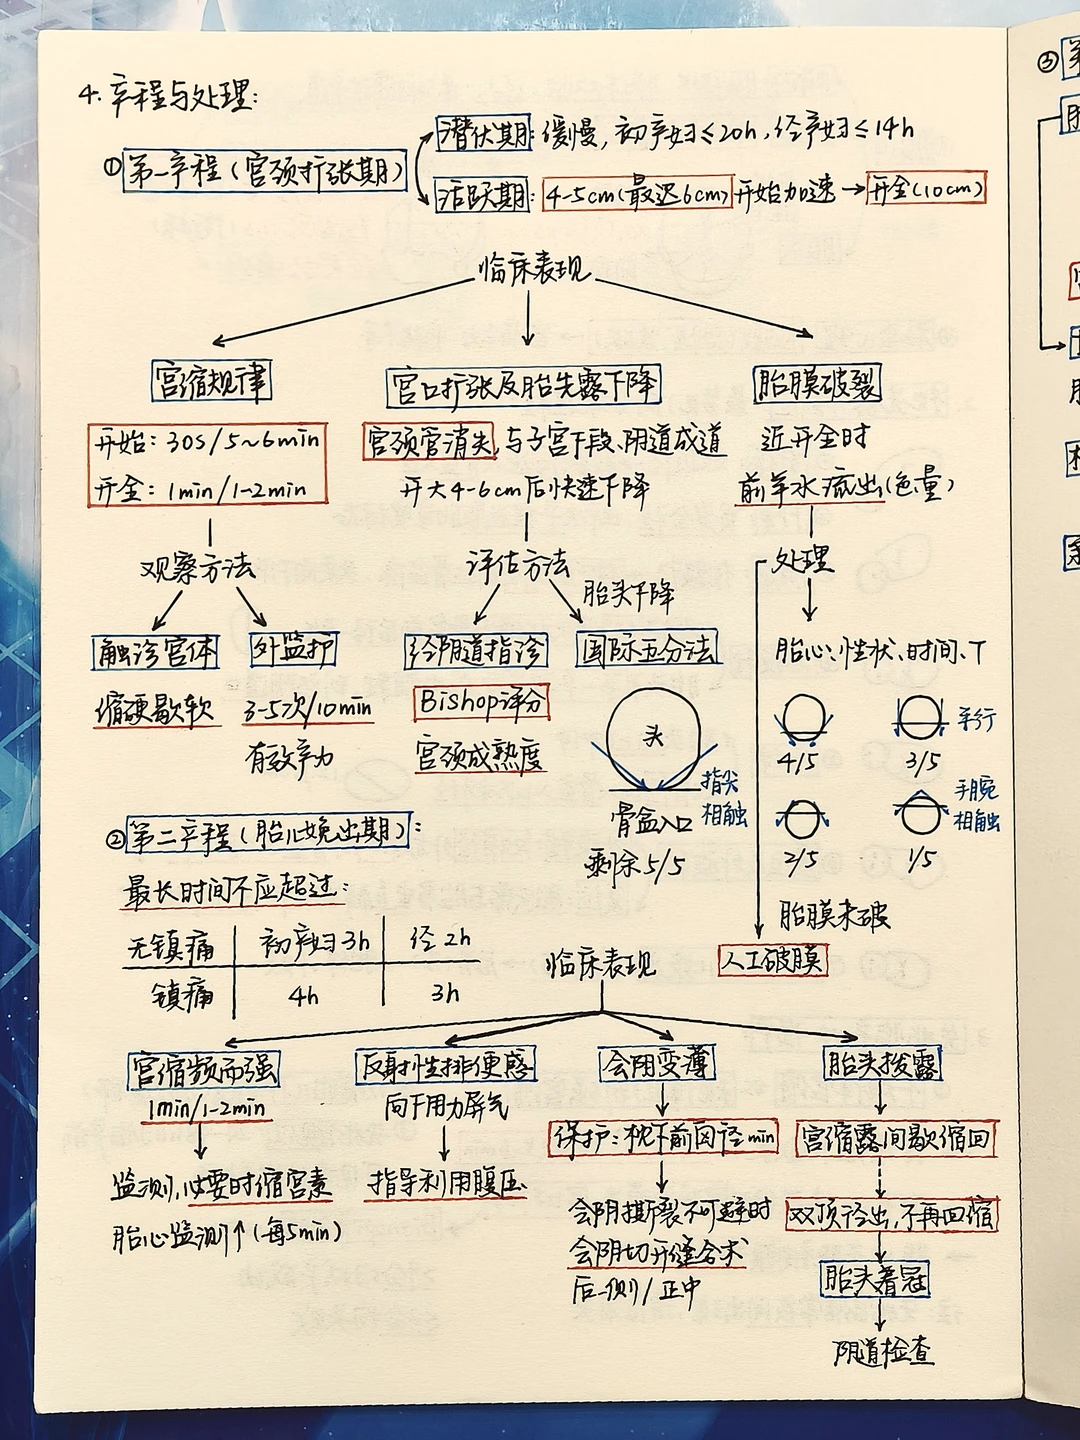 4. 产程与处理:
①第一产程(宫颈扩张期)
潜伏期: 缓慢, 初产妇≤20h, 经产妇≤14h
活跃期: 4-5cm(最迟6cm)开始加速→开全(10cm)
临床表现
宫缩规律
开始: 30s/5~6min
开全: 1min/1-2min
观察方法
触诊宫体
缩硬歇软
外监护
3-5次/10min
有效产力
宫口扩张及胎先露下降
宫颈管消失,与子宫下段、阴道成道
开大4-6cm后快速下降
评估方法
经阴道指诊
Bishop评分
宫颈成熟度
胎头下降
国际五分法
头
指尖
相触
骨盆入口
剩余5/5
胎膜破裂
近开全时
前羊水流出(色.量)
处理
胎心、性状、时间、T
4/5
3/5
平行
2/5
1/5
手腕
相触
胎膜未破
人工破膜
②第二产程(胎儿娩出期):
最长时间不应超过:
无镇痛 初产妇3h 经2h
镇痛 4h 3h
临床表现
宫缩频而强
1min/1-2min
监测,必要时缩宫素
胎心监测↑(每5min)
反射性排便感
向下用力屏气
指导利用腹压
会阴变薄
保护:枕下前囟径min
会阴撕裂不可避时
会阴切开缝合术
后-侧/正中
胎头拨露
宫缩露间歇缩回
双顶径出,不再回缩
胎头着冠
阴道检查
③